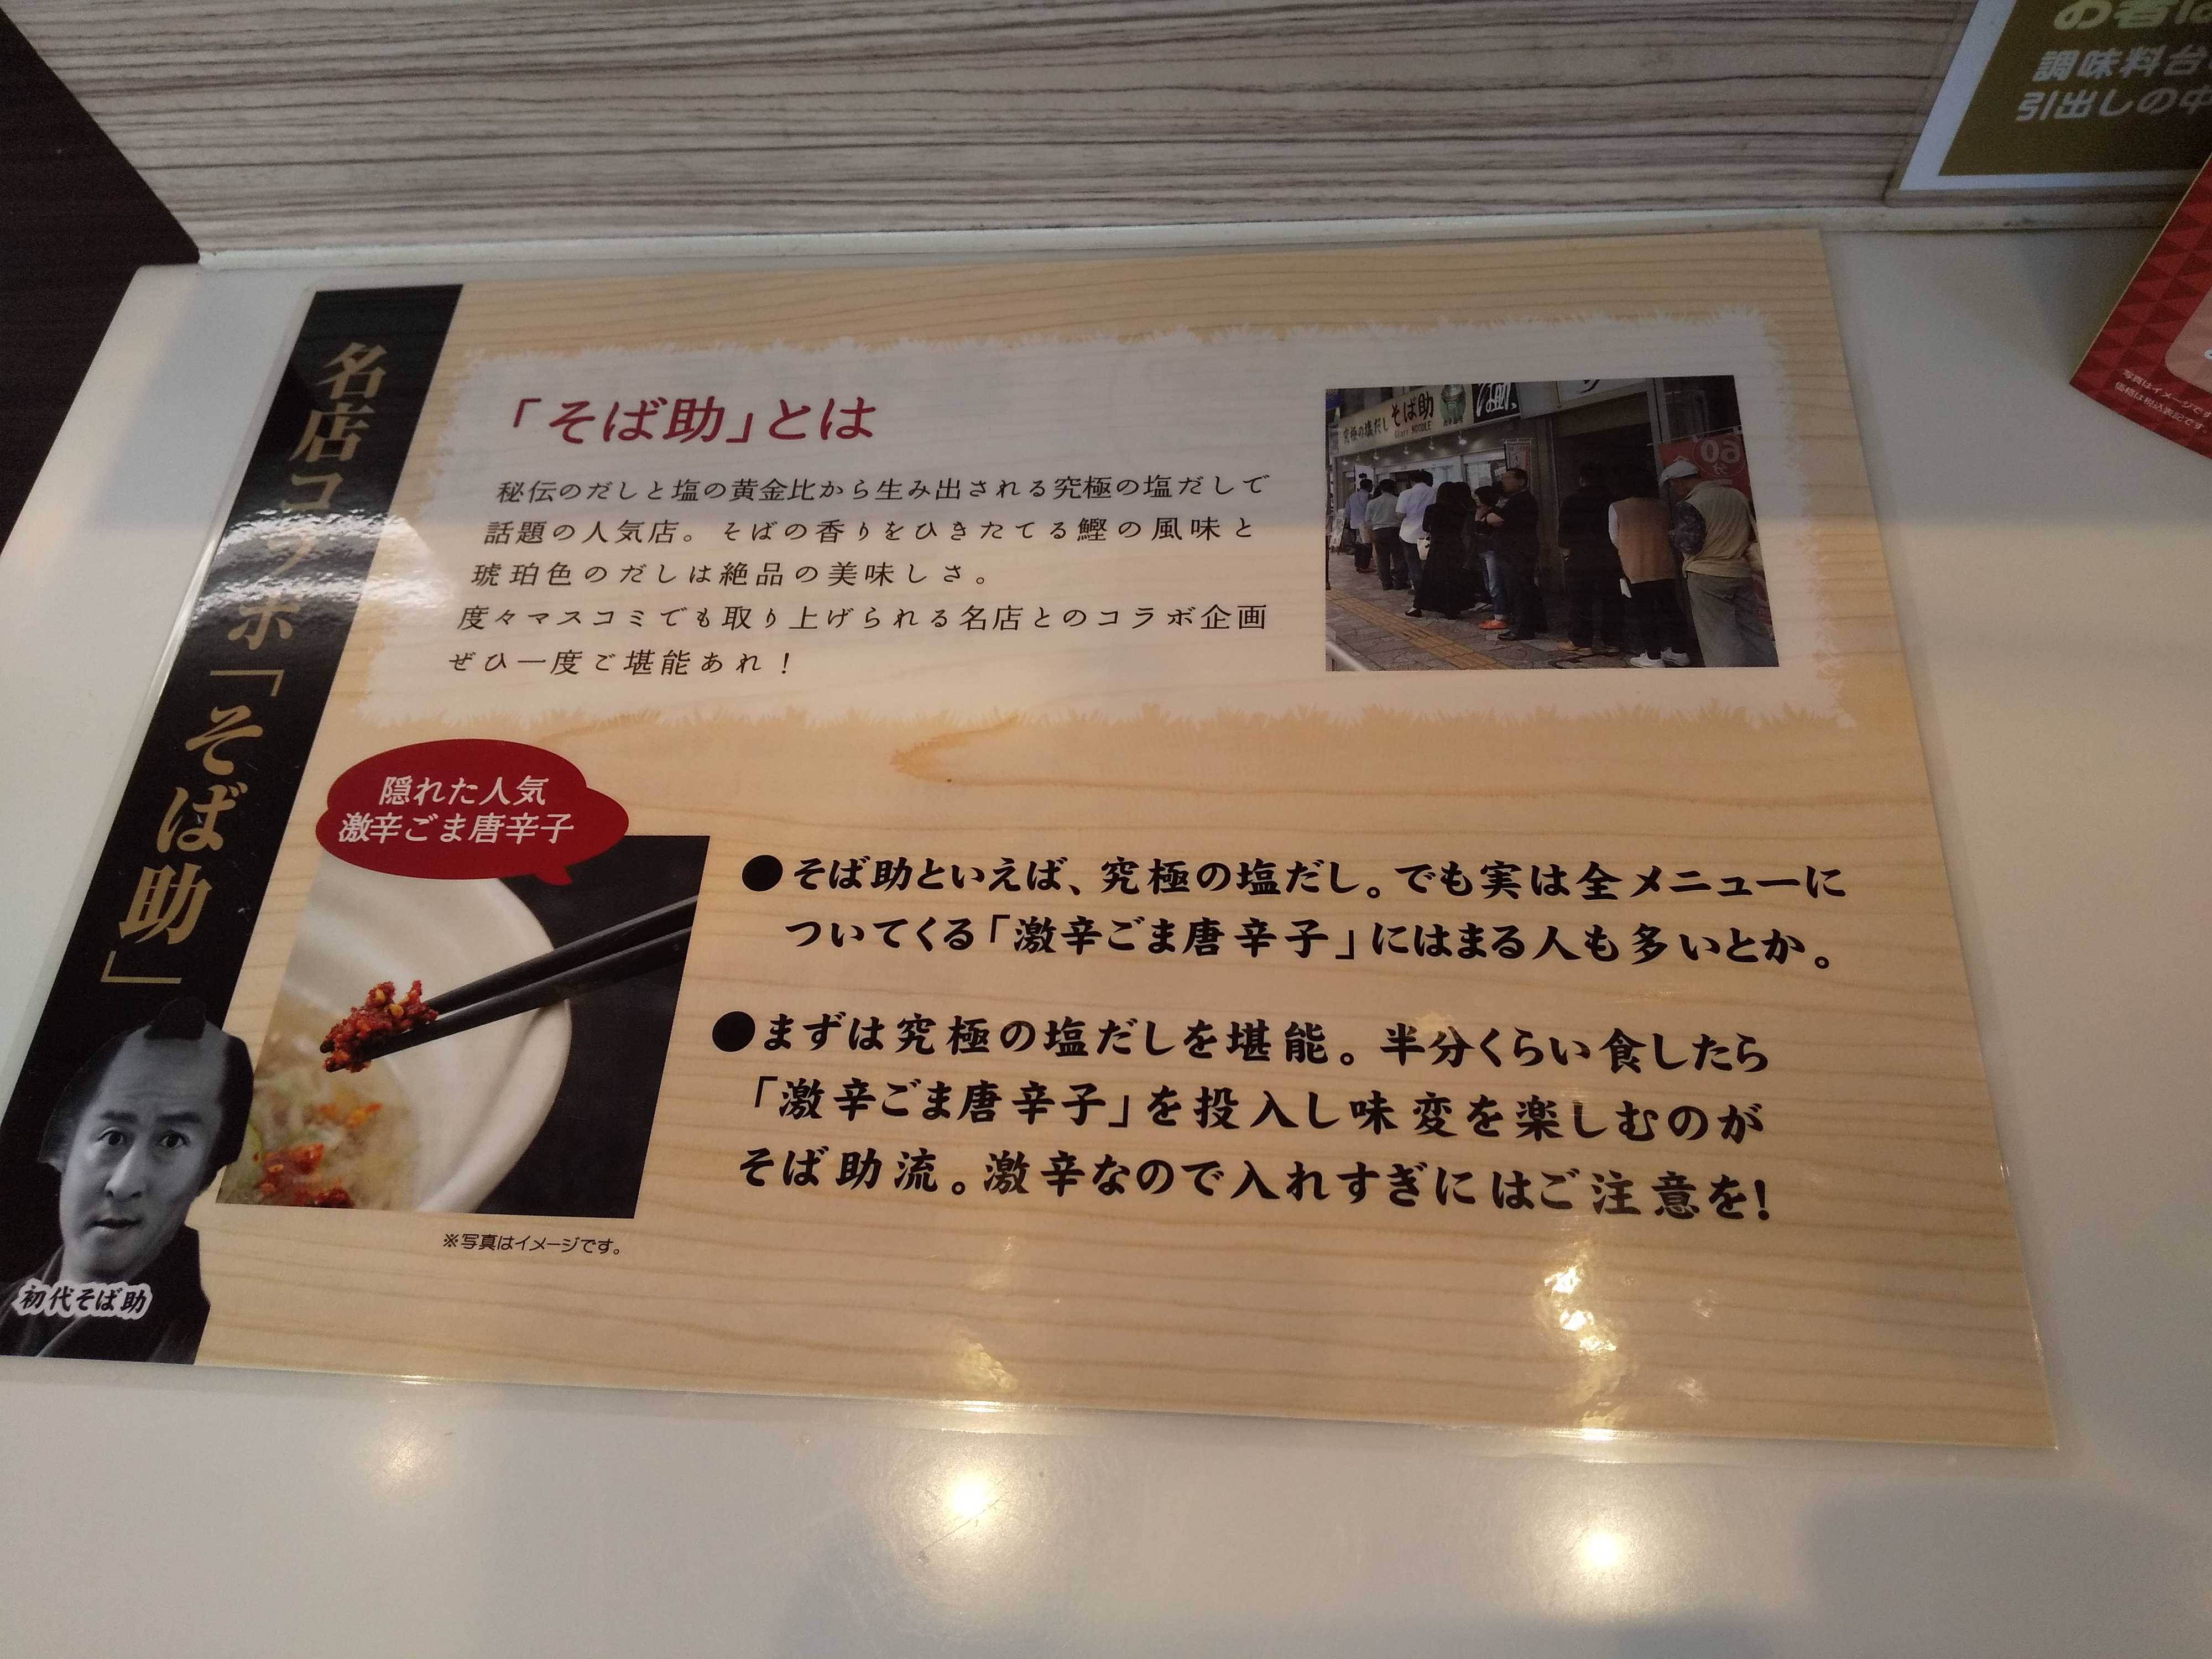 お箸は
調味料台
引出しの中
写真はイメージで
価格は税込表記です。
名店コラボ「そば助」
「そば助」とは
秘伝のだしと塩の黄金比から生み出される究極の塩だしで
話題の人気店。そばの香りをひきたてる鰹の風味と
琥珀色のだしは絶品の美味しさ。
度々マスコミでも取り上げられる名店とのコラボ企画
ぜひ一度ご堪能あれ！
究極の塩だし そば助
隠れた人気
激辛ごま唐辛子
●そば助といえば、究極の塩だし。でも実は全メニューに
ついてくる「激辛ごま唐辛子」にはまる人も多いとか。
●まずは究極の塩だしを堪能。半分くらい食したら
「激辛ごま唐辛子」を投入し味変を楽しむのが
そば助流。激辛なので入れすぎにはご注意を!
※写真はイメージです。
初代そば助